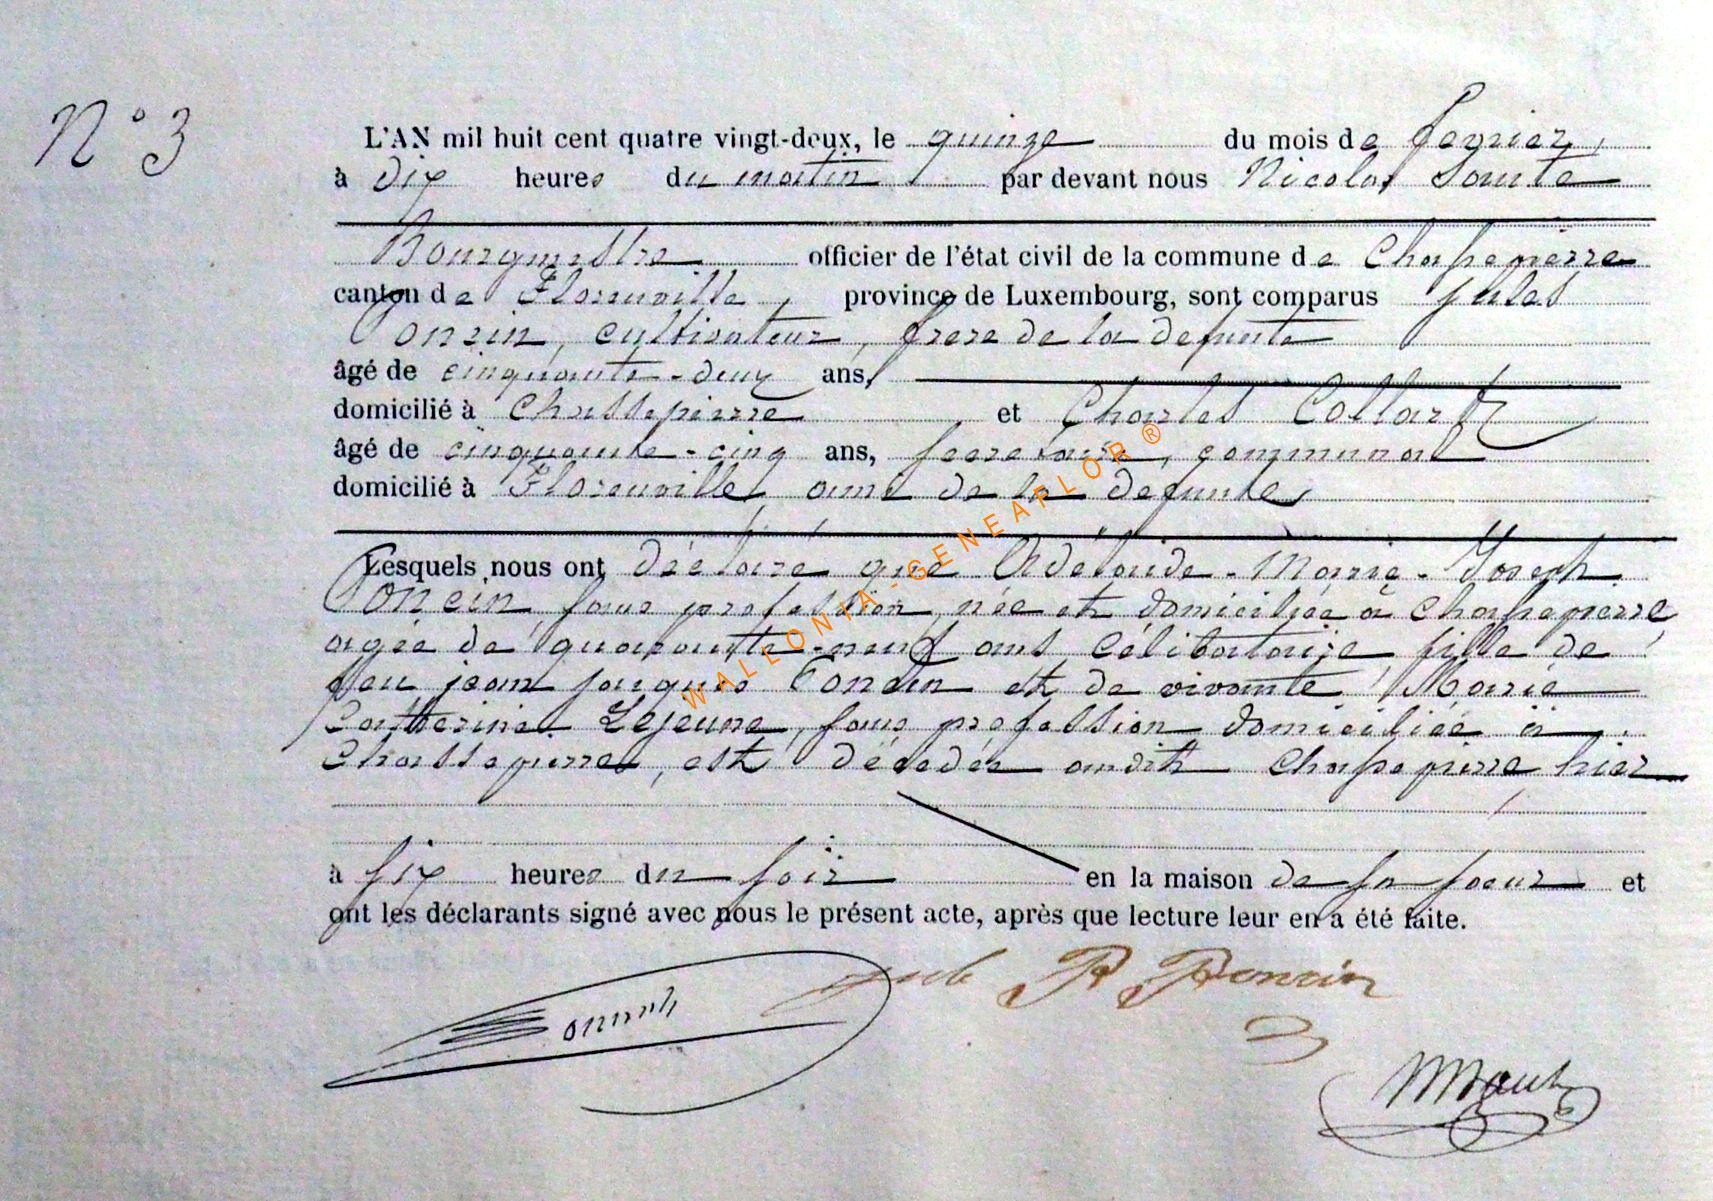 N° 3
L'AN mil huit cent quatre vingt-deux, le quinze du mois de fevrier,
à dix heures du matin par devant nous Nicolas
Bourgmestre officier de l'état civil de la commune de Chassepierre
canton de Florenville, province de Luxembourg, sont comparus jules
Poncin, cultivateur, frere de la defunte
âgé de cinquante-deux ans,
domicilié à Chassepierre et Charles Collart
âgé de cinquante-cinq ans, secretaire, communal
domicilié à Florenville, ami de la defunte,
Lesquels nous ont déclaré que Adélaïde-Marie-Joseph
Poncin, sans profession, née et domiciliée à Chassepierre,
agée de quarante-neuf ans célibataire, fille de
feu jean jaques Poncin et de vivante, Marie
Catherine Lejeune, sans profession domiciliée à
Chassepierre, est décédée audit Chassepierre hier
à six heures du soir en la maison de sa soeur et
ont les déclarants signé avec nous le présent acte, après que lecture leur en a été faite.
jules Poncin
WALLONIA-GENEAFLOR ®